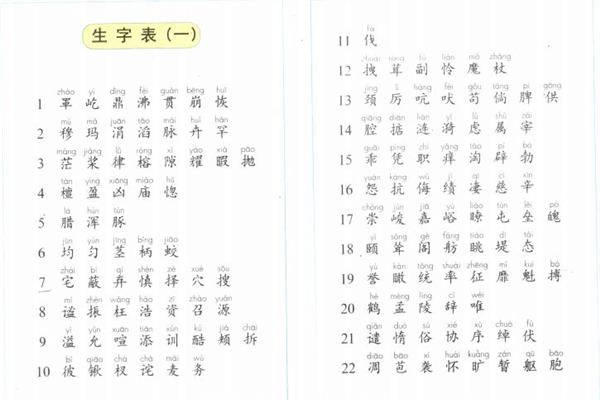 生字表(一)
zhào yì dǐng fèi guàn bēng huī
1 罩 屹 鼎 沸 贯 崩 恢
mù mǎ juān tāo mài huì hǎn
2 穆 玛 涓 滔 脉 卉 罕
máng jiāng lǜ róng xì yào xiá pāo
3 茫 桨 律 榕 隙 耀 暇 抛
tán yíng xiōng miào hū
4 檀 盈 凶 庙 惚
là hún tún
5 腊 浑 豚
jūn yún jīng bǐng jiāo
6 均 匀 茎 柄 蛟
zhái bì qì shèn zé xué sōu
7 宅 蔽 弃 慎 择 穴 搜
mì zhèn wǎng hào zī zhào yuán
8 谧 振 枉 浩 资 召 源
yì yǔn xuān tiān xùn kù jiá chāi
9 溢 允 喧 添 训 酷 颊 拆
bǐ qiāo chà chà mài wù
10 彼 锹 杈 诧 麦 务
fá
11 伐
zhuài róng fù lián mó zhàng
12 拽 茸 副 怜 魔 杖
jǐng lì kēng fèi gǒu tǎng pí gōng
13 颈 厉 吭 吠 苟 倘 脾 供
qiāng diān lián yī lǜ shǔ zǎi
14 腔 掂 涟 漪 虑 属 宰
guāi píng zhí yǎng táo pì bó
15 乖 凭 职 痒 淘 辟 勃
yuàn kàng wǔ jì qī cí xīn
16 怨 抗 侮 绩 凄 慈 辛
chóng jùn jiā yù liào tún lěi pò
17 崇 峻 嘉 峪 瞭 屯 垒 魄
yí sǒng gé fǎng tiào dī tài
18 颐 耸 阁 舫 眺 堤 态
yù kàn tǒng shuài zhēng mǐ kuí bó
19 誉 瞰 统 率 征 靡 魁 搏
hè mèng líng cí wéi
20 鹤 孟 陵 辞 唯
qiǎn duò sú xié xù chuò fú
21 谴 惰 俗 协 序 绰 伏
diāo bā xí huái kuàng zàn qū bāo
22 凋 芭 袭 怀 旷 暂 躯 胞